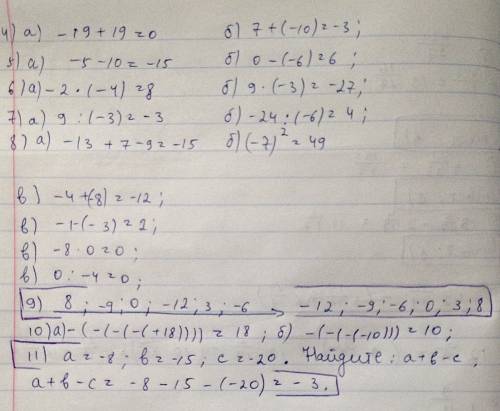 4) а) -19 + 19 = 0 б) 7 + (-10) = -3 ;
5) а) -5 - 10 = -15 б) 0 - (-6) = 6 ;
6) а) - 2 · (-4) = 8 б) 9 · (-3) = -27 ;
7) а) 9 : (-3) = -3 б) -24 : (-6) = 4 ;
8) а) -13 + 7 - 9 = -15 б) (-7)² = 49
в) -4 + (-8) = -12 ;
в) -1 - (-3) = 2 ;
в) -8 · 0 = 0 ;
в) 0 : -4 = 0 ;
9) 8 ; -9 ; 0 ; -12 ; 3 ; -6 → -12 ; -9 ; -6 ; 0 ; 3 ; 8
10) а) - (-(-(-(+18)))) = 18 ; б) -(-(-(-10))) = 10 ;
11) a = -8 ; в = -15 ; c = -20 . Найдите : a + в - c ,
a + в - c = -8 - 15 - (-20) = -3 .